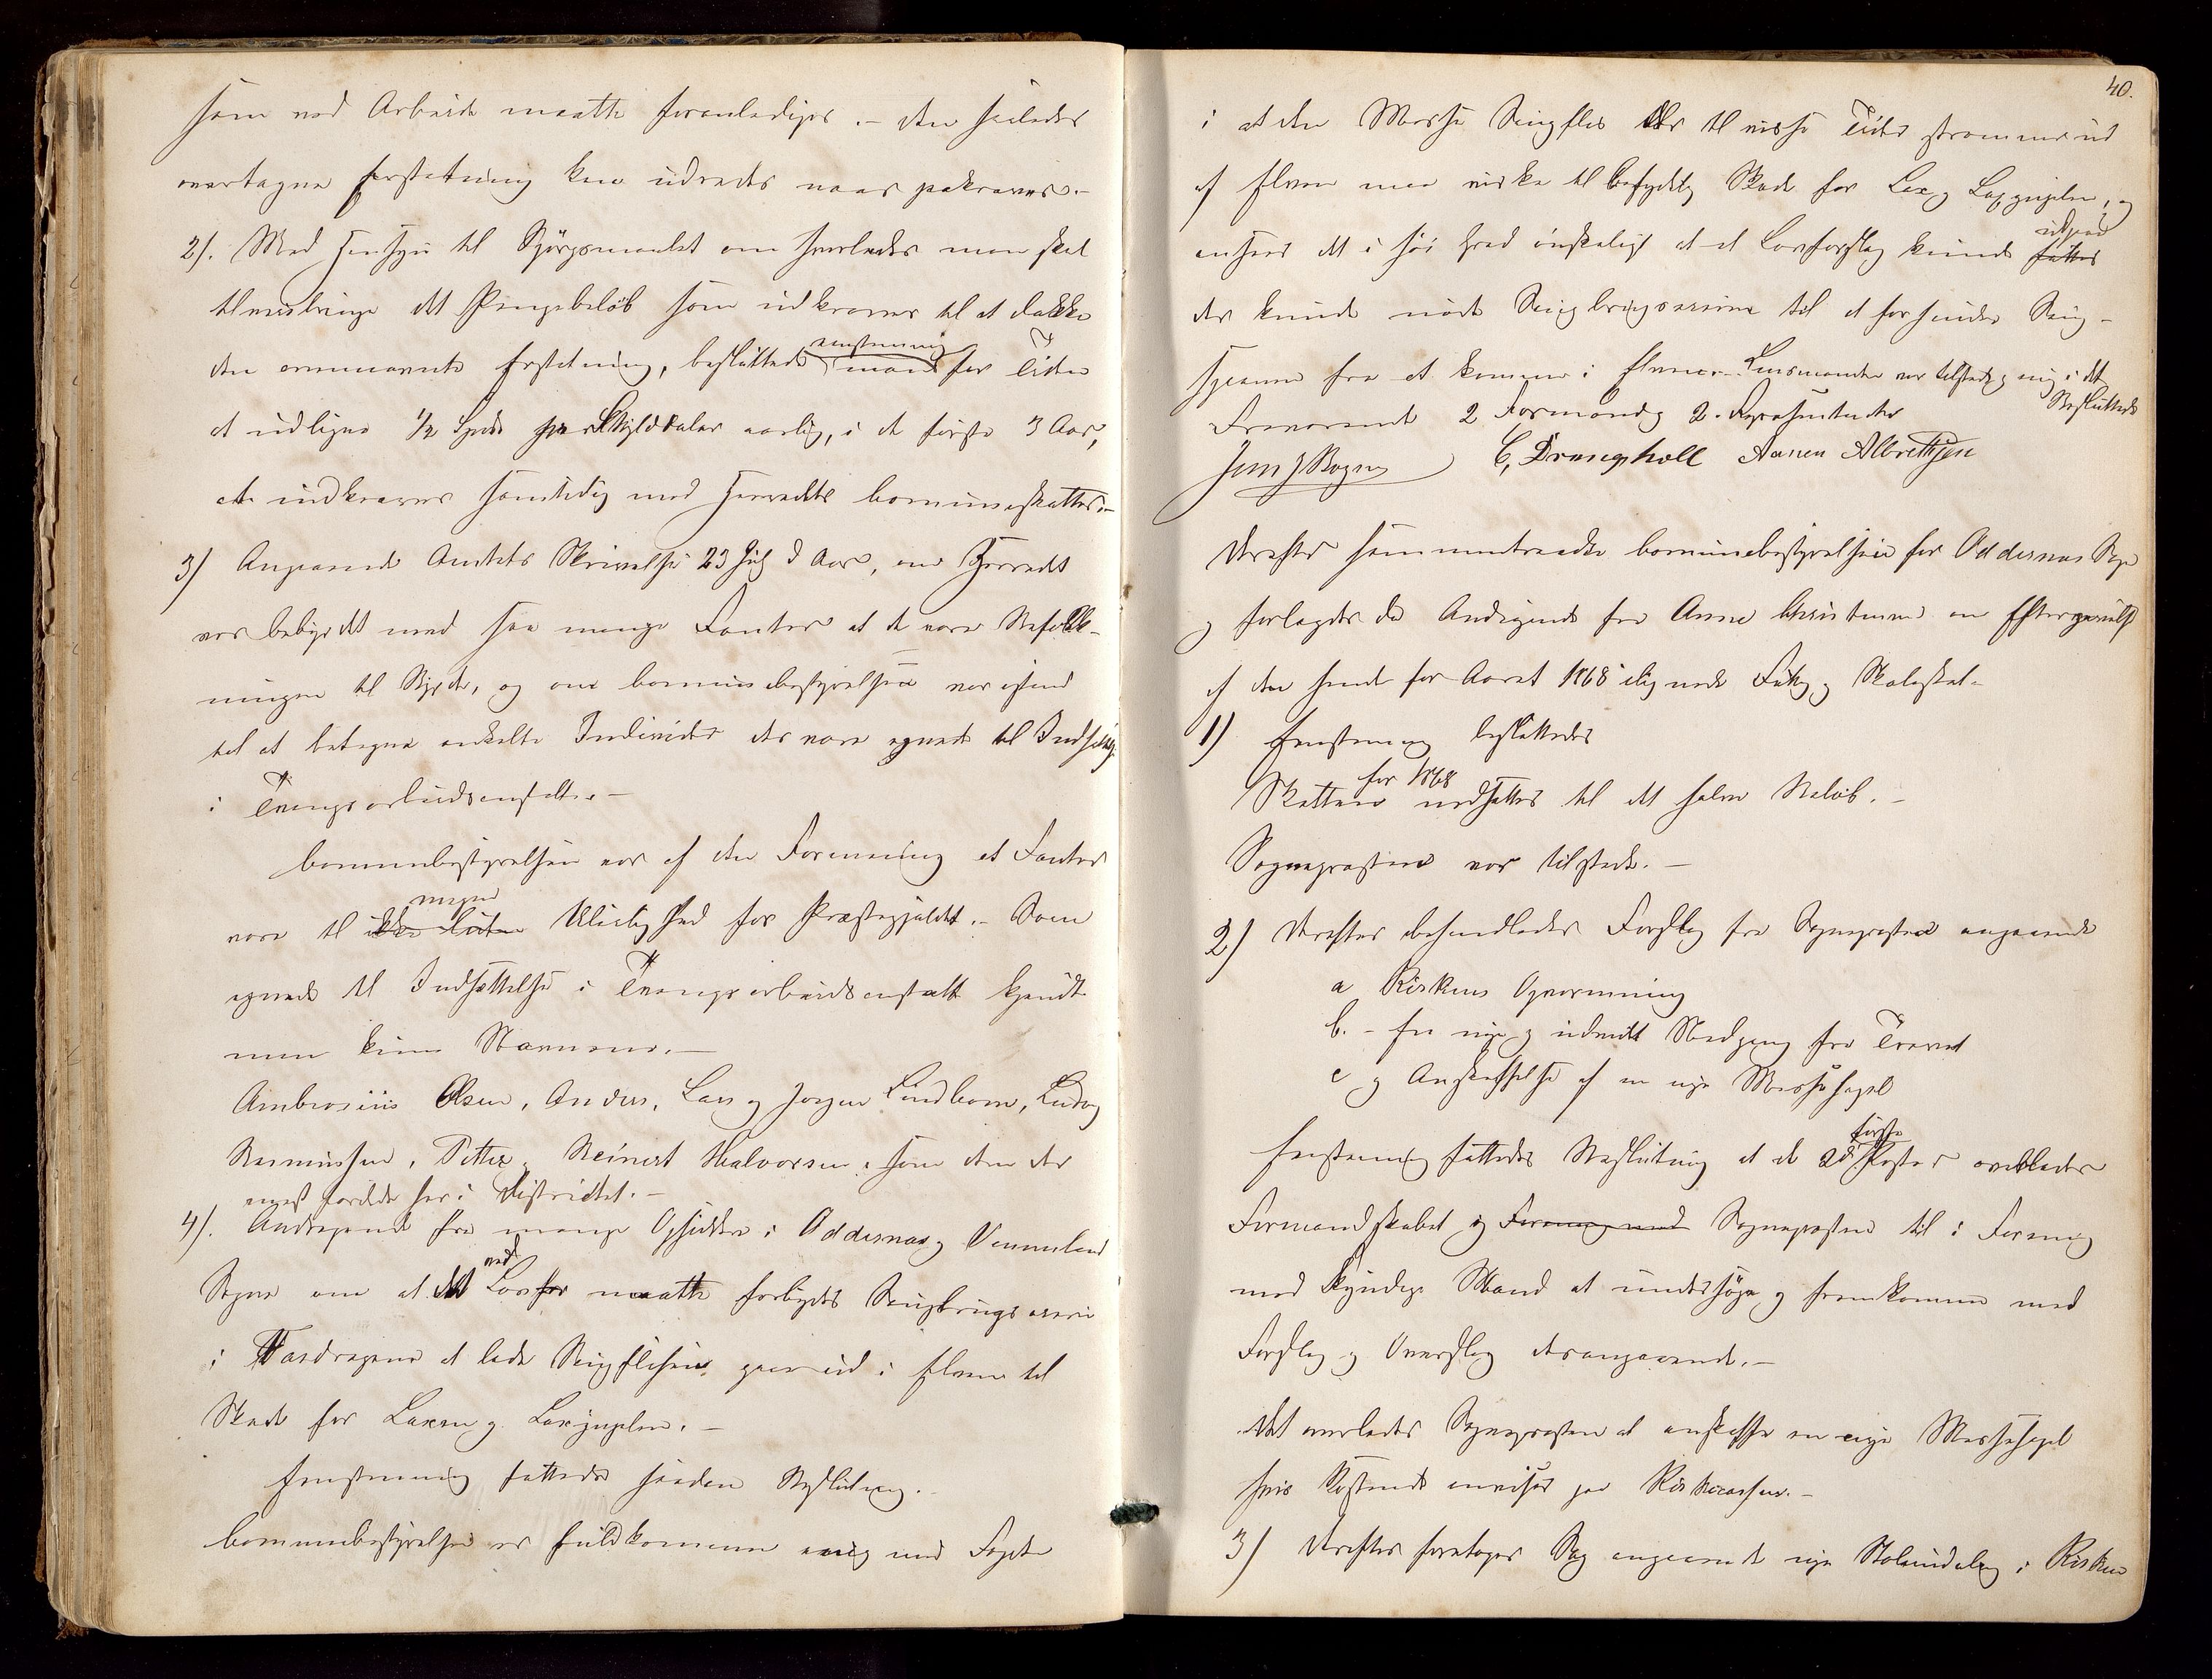 som ved Arbeide maatte foranlediges. – den saaledes
overtagne Erstatning kan udredes naar paakræves. –
2). Med Hensyn til Spörgsmaalet om hvorledes man skal
tilveiebringe det Pengebelöb som udkræves til at dække
den ommeldte Erstatning, besluttede enstemmig man for Tiden
at udligne 1/2 Spd pr Skylddaler aarlig, i de förste 3 Aar,
at indkræves samtidig med Herredets Communeskatter. –
3) Angaaende Amtets Skrivelse 23 Juli d Aar, om Herredet
var bebyrdet med saa mange Fanter at de vare Befolk-
ningen til Byrde, og om Communebestyrelsen var istand
til at betegne enkelte Individer der vare egnede til Indsættelse
i Tvangsarbeidsanstalt. –
Communebestyrelsen var af den Formening at Fanter
vare til ikke liden megen Uleilighed for Præstegjeldet. – Som
egnede til Indsættelse i Tvangsarbeidsanstalt kjendte
man kun Navnene. –
Ambrosius Olsen, Anders, Lars og Jörgen Lindbom, Ludvig
Rasmussen, Petter, Reinert Halvorsen, som dem der
mest færdes her i Distriktet. –
4). Andragende fra mange Opsiddere i Oddernes og Vennesland
Sogne om at det ved Lov for maatte forbydes Saugbrugseierne
i Vasdragene at lade Saugflisen gaae ud i Elven til
Skade for Laxen og Laxyngelen. –
Enstemmig fattedes saadan Beslutning. –
Communebestyrelsen er fuldkommen enig med Fogden
40.
i at den Masse Saugflis der til visse Tider strømmer ud
af Elven maa virke til betydelig Skade for Lax og Laxyngelen, og
ansees det i höi Grad önskeligt at et Lovforslag kunde fattes udgaae
der kunde nöde Saugbrugseierne til at forhindre Saug-
spaanene fra at komme i Elven. – Lensmanden var tilstede og enig i det
Besluttede
Fraværende 2 Formænd og 2 Repræsentanter
Jens J Bogen C. Drangsholt Aanen Albrethsen
Derefter sammentraadte Communebestyrelsen for Oddernes Sogn
og forlagdes da Andragende fra Anne Christense om Eftergivelse
af den hende for Aaret 1868 ilignede Fattig og Skoleskat –
1) Enstemmig besluttedes
Skatten for 1868 nedsættes til det halve Belöb. –
Sognepræsten var tilstede. –
2) Derefter behandledes Forslag fra Sognepræsten angaaende
a Kirkens Opvarmning
b. – En ny og udvidet Nedgang fra Taarnet
c og Anskaffelse af en ny Messehagel
Enstemmig fattedes Beslutning at de 2de förste Poster overlades
Formandskabet og Forening med Sognepræsten til i Forening
med kyndige Mænd at undersöge og fremkomme med
Forslag og Overslag desangaaende. –
Det overlades Sognepræsten at anskaffe en ny Messehagel
hvis Kostende anvises paa Kirkecassen. –
3) Derefter foretages Sag angaaende ny Stoleinddeling i Kirken